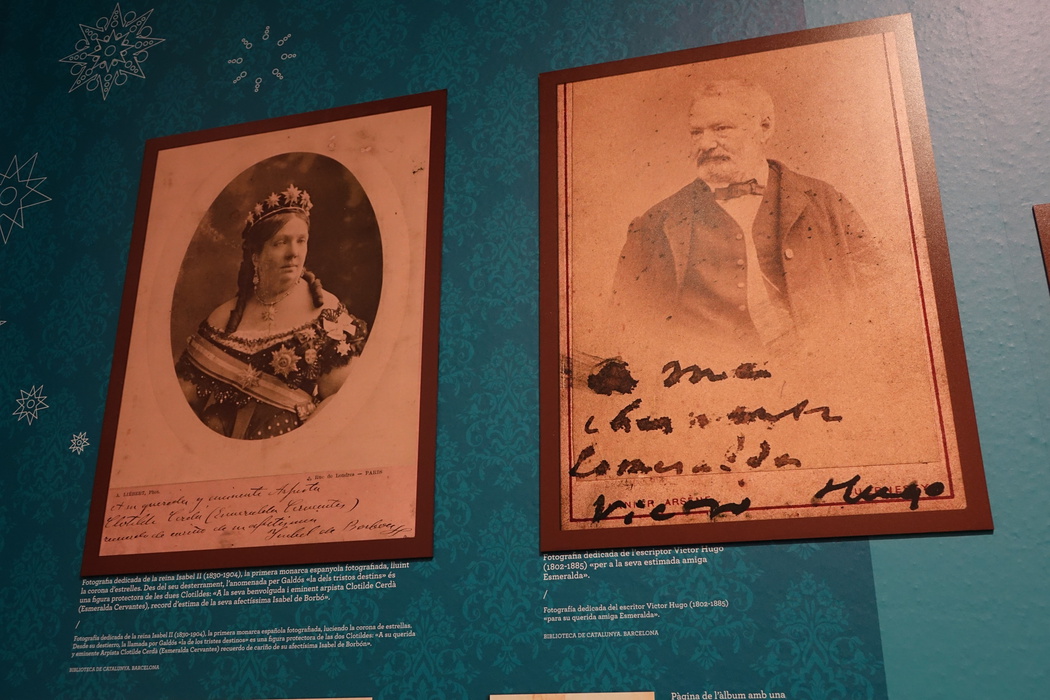 A. LIÉBERT, Phot.
6, Rue de Londres — PARIS
A mi querida y eminente Arpista
Clotilde Cerdá (Esmeralda Cervantes)
recuerdo de cariño de su afectísima
Isabel de Borbon
Fotografia dedicada de la reina Isabel II (1830-1904), la primera monarca espanyola fotografiada, lluint
la corona d'estrelles. Des del seu desterrament, l'anomenada per Galdós «la dels tristos destins» és
una figura protectora de les dues Clotildes: «A la seva benvolguda i eminent arpista Clotilde Cerdà
(Esmeralda Cervantes), record d'estima de la seva afectíssima Isabel de Borbó».
/
Fotografía dedicada de la reina Isabel II (1830-1904), la primera monarca española fotografiada, luciendo la corona de estrellas.
Desde su destierro, la llamada por Galdós «la de los tristes destinos» es una figura protectora de las dos Clotildes: «A su querida
y eminente Arpista Clotilde Cerdà (Esmeralda Cervantes) recuerdo de cariño de su afectísima Isabel de Borbón».
BIBLIOTECA DE CATALUNYA. BARCELONA
A ma
charmante
Esmeralda
Victor Hugo
Fotografia dedicada de l'escriptor Victor Hugo
(1802-1885) «per a la seva estimada amiga
Esmeralda».
/
Fotografía dedicada del escritor Victor Hugo (1802-1885)
«para su querida amiga Esmeralda».
BIBLIOTECA DE CATALUNYA. BARCELONA
Pàgina de l'àlbum amb una